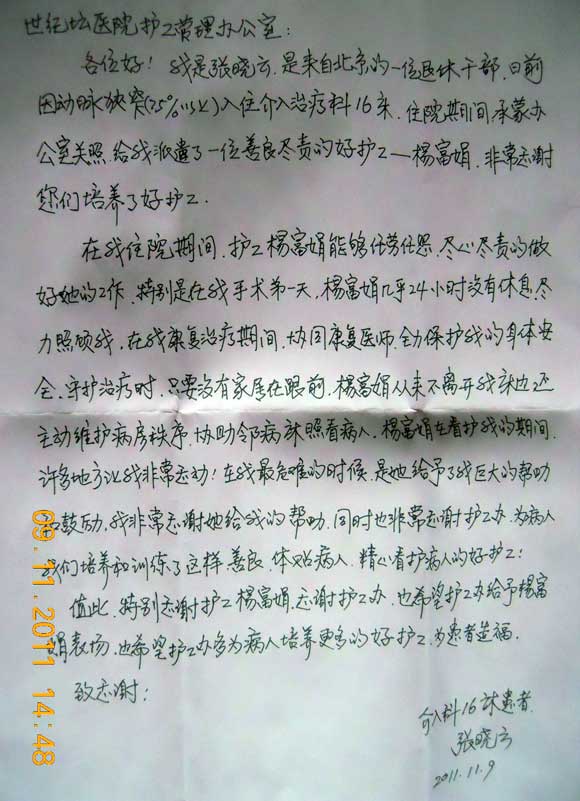 世纪坛医院护工管理办公室:
各位好!我是张晓云,是来自北京的一位退休干部,日前
因动脉狭窄(75%以上)入住介入治疗科16床,住院期间,承蒙办
公室关照,给我派遣了一位善良尽责的好护工—楊富娟,非常感谢
您们培养了好护工.
在我住院期间,护工楊富娟能够任劳任怨,尽心尽责的做
好她的工作,特别是在我手术第一天,楊富娟几乎24小时没有休息,尽
力照顾我,在我康复治疗期间,协同康复医师,全力保护我的身体安
全,守护治疗时,只要没有家属在眼前,楊富娟从来不离开我床边还
主动维护病房秩序,协助邻病床照看病人,楊富娟在看护我的期间,
许多地方让我非常感动!在我最危难的时候,是她给予了我巨大的帮助
和鼓励,我非常感谢她给我的帮助,同时也非常感谢护工办,为病人
我们培养和训练了这样,善良,体贴病人,精心看护病人的好护工!
值此,特别感谢护工楊富娟,感谢护工办,也希望护工办给予楊富
娟表扬,也希望护工办多为病人培养更多的好护工,为患者造福.
致感谢!
介入科16床患者
张晓云
2011.11.9
09.11.2011 14:48